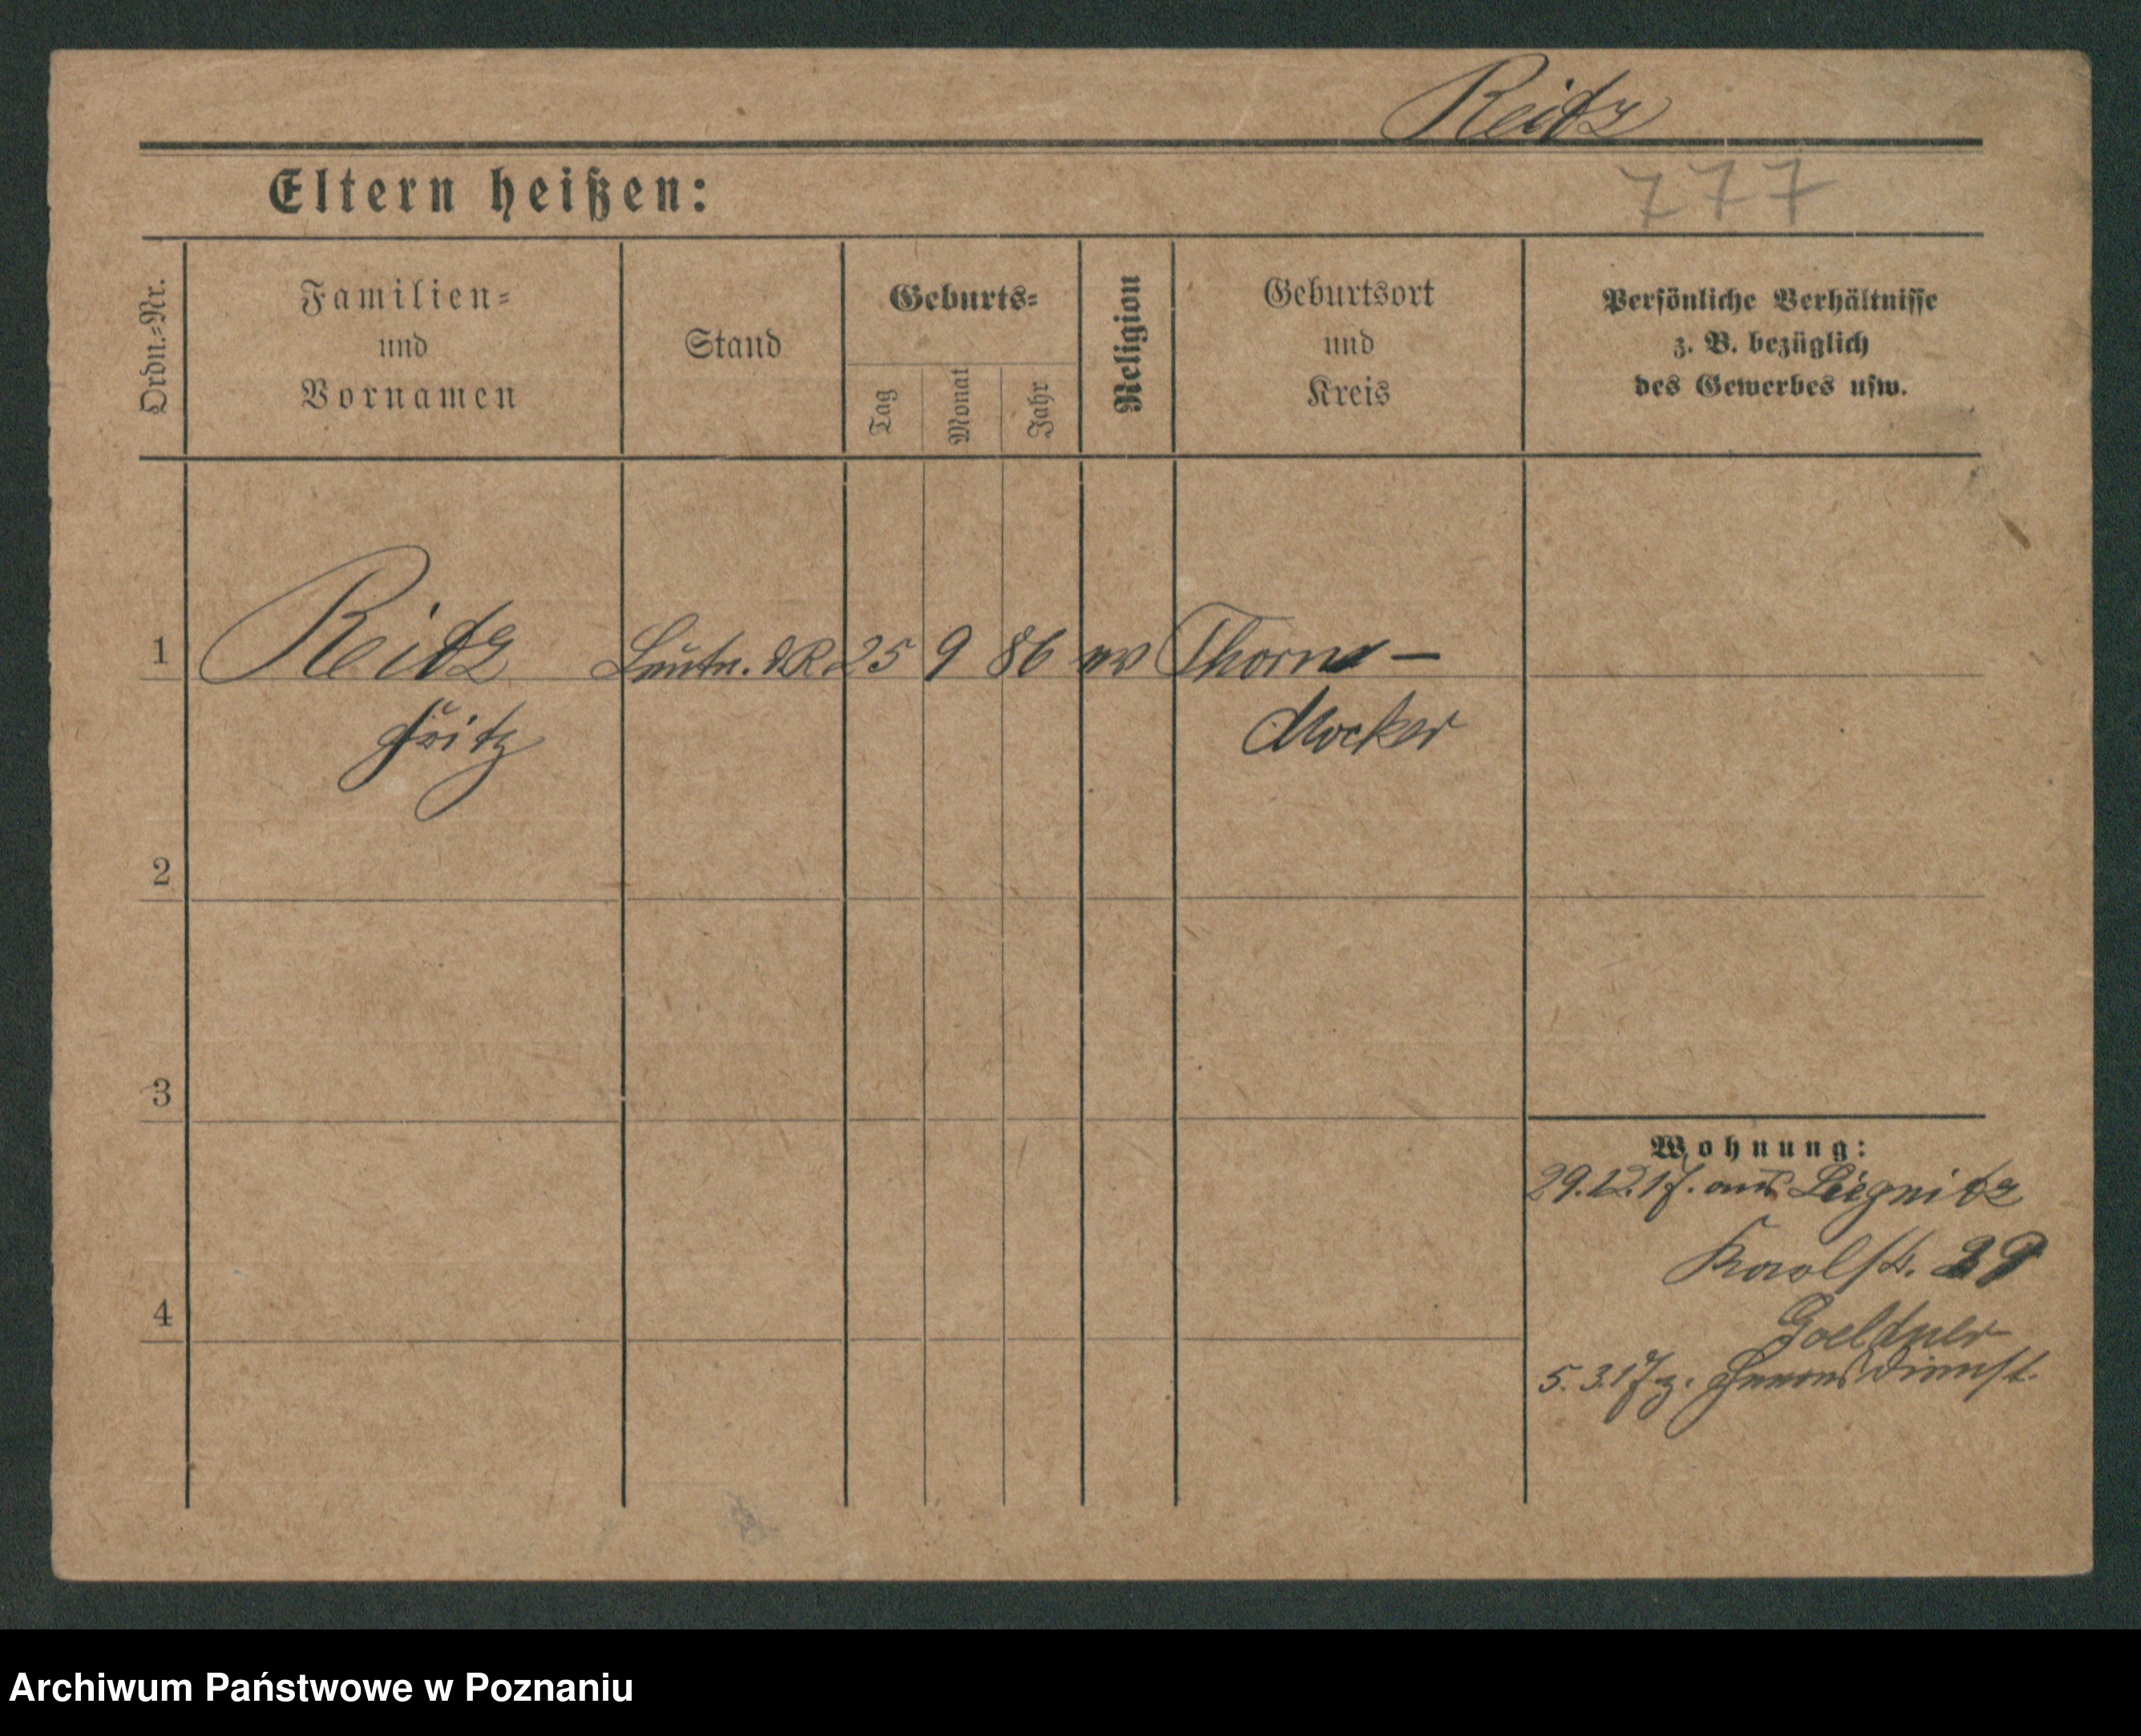 Reitz
Eltern heißen:
777
Ordn.-Nr.
Familien-
und
Vornamen
Stand
Geburts-
Tag
Monat
Jahr
Religion
Geburtsort
und
Kreis
Persönliche Verhältnisse
z. B. bezüglich
des Gewerbes usw.
1
Reitz
Leutn. d R
25
9
86
ev
Thorn –
Fritz
Mocker
2
3
4
Wohnung:
29.12.17. aus Liegnitz
Karolstr. 29
Goeldner
5. 3. 17 z. Heeresdienst.
Archiwum Państwowe w Poznaniu